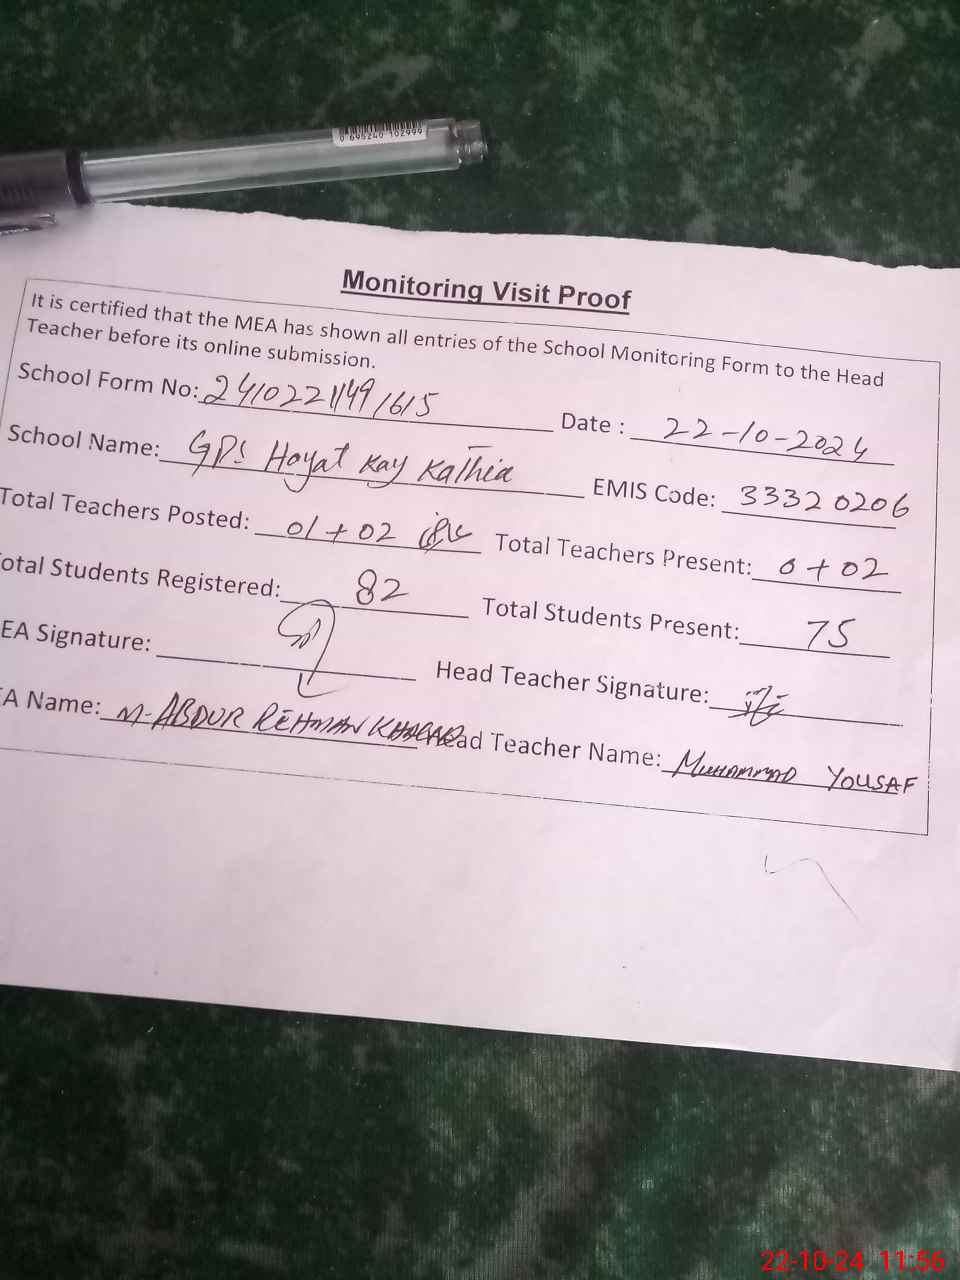 0 695240 102999
Monitoring Visit Proof
It is certified that the MEA has shown all entries of the School Monitoring Form to the Head
Teacher before its online submission.
School Form No: 24102211491615 Date : 22-10-2024
School Name: GPS Hayat Kay Kathia EMIS Code: 33320206
Total Teachers Posted: 01 + 02 Total Teachers Present: 0 + 02
otal Students Registered: 82 Total Students Present: 75
EA Signature: Head Teacher Signature:
A Name: M-ABDUR REHMAN Head Teacher Name: MUHAMMAD YOUSAF
22-10-24 11:56